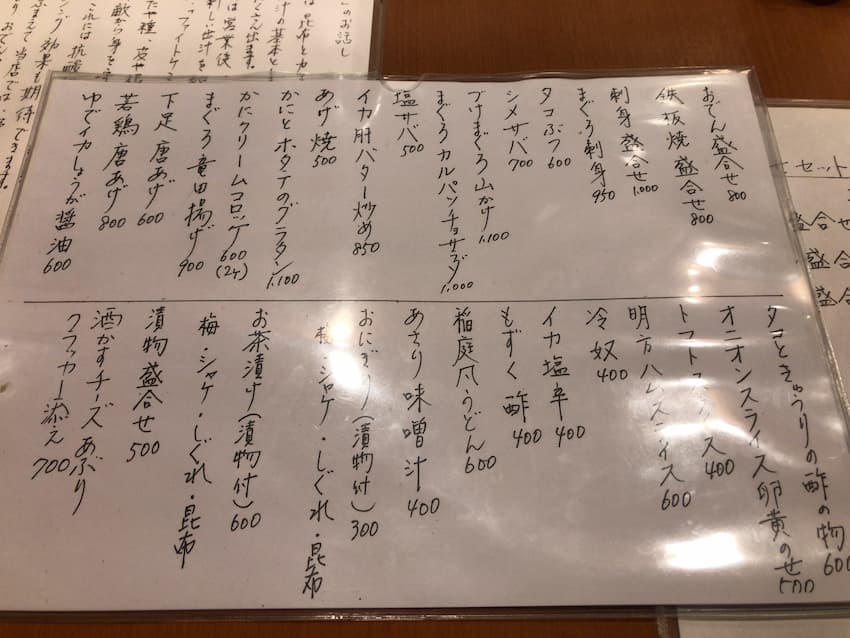 おでん盛合せ 800
鉄板焼盛合せ 800
刺身盛合せ 1,000
まぐろ刺身 950
タコぶつ 600
シメサバ 700
づけまぐろ山かけ 1,100
まぐろカルパッチョサラダ 1,000
塩サバ 500
イカ肝バター炒め 850
あげ焼 500
かにとホタテのグラタン 1,100
かにクリームコロッケ 600 (2ケ)
まぐろ竜田揚げ 900
下足唐あげ 600
若鶏唐あげ 800
ゆでイカしょうが醤油 600
タコときゅうりの酢の物 600
オニオンスライス卵黄のせ 500
トマトスライス 400
明方ハムスライス 600
冷奴 400
イカ塩辛 400
もずく酢 400
稲庭風うどん 600
あさり味噌汁 400
おにぎり(漬物付) 300
梅・シャケ・しぐれ・昆布
お茶漬け(漬物付) 600
梅・シャケ・しぐれ・昆布
漬物盛合せ 500
酒かすチーズあぶり
クラッカー添え 700
セット
盛合せ
盛合せ
盛合せ
のお話し
は昆布とカツ
汁の基本と